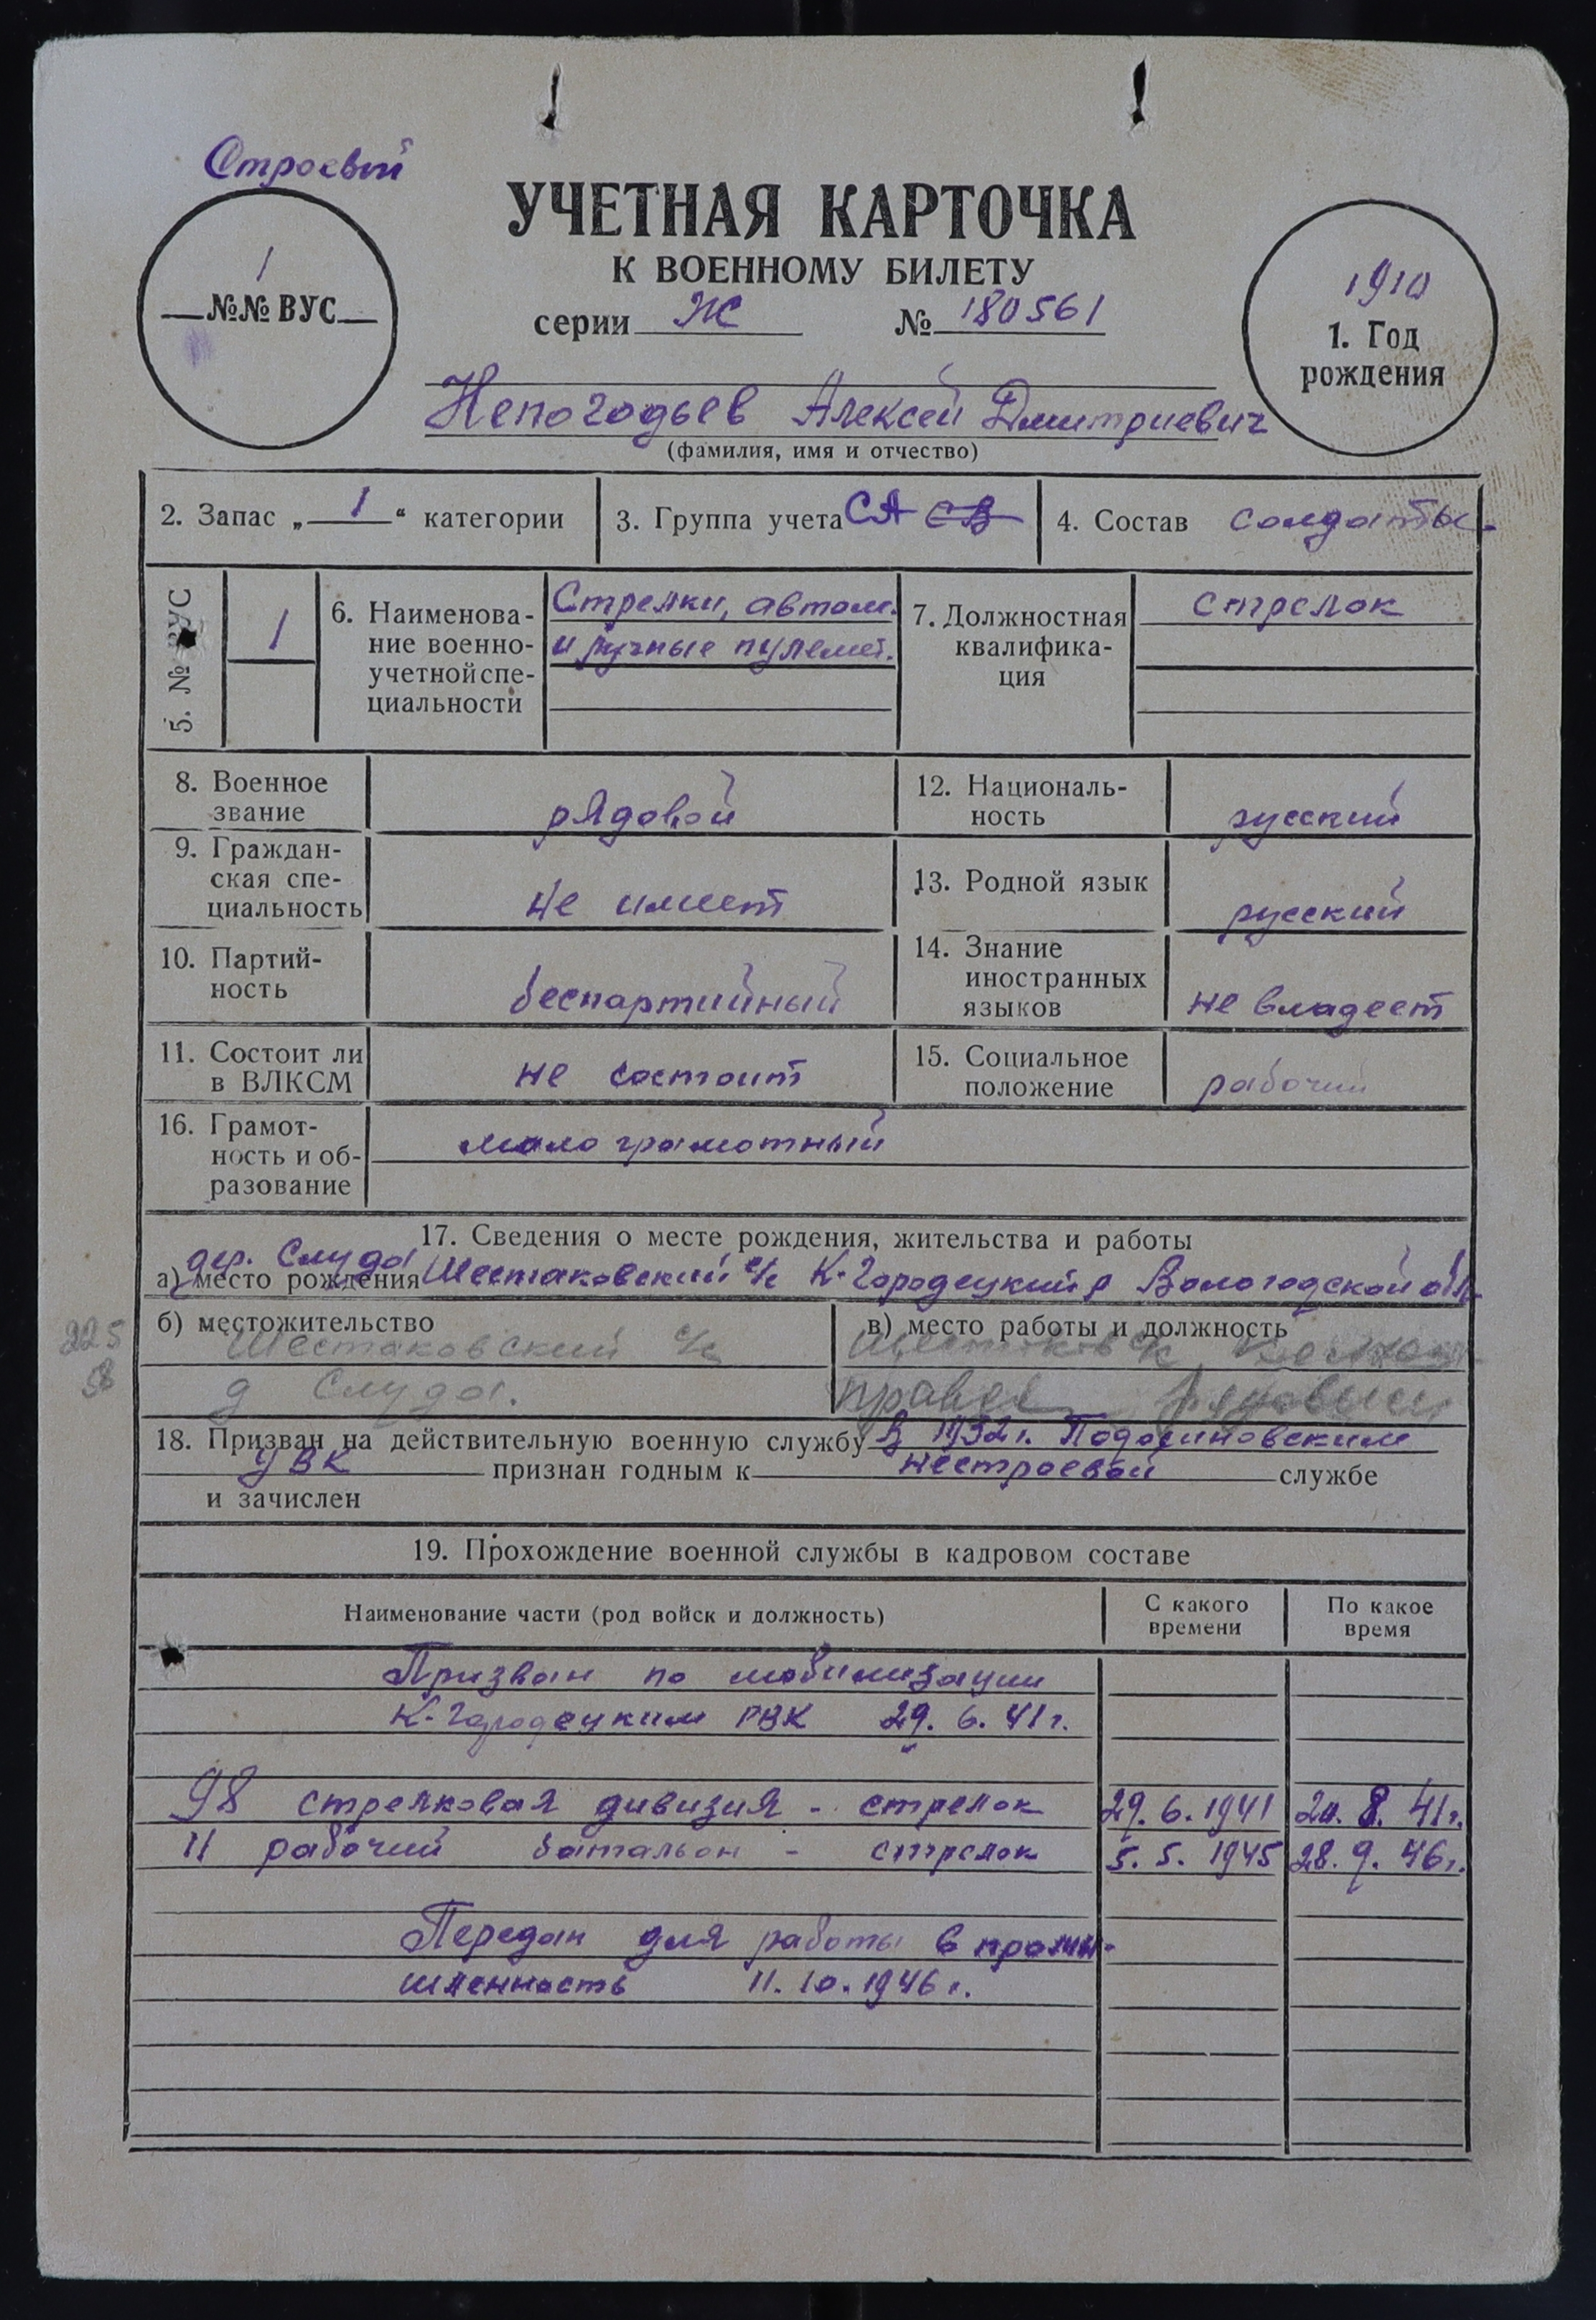 Строевой
УЧЕТНАЯ КАРТОЧКА
К ВОЕННОМУ БИЛЕТУ
серии Ж № 180561
1
№№ ВУС
1910
1. Год
рождения
Непогодьев Алексей Дмитриевич
(фамилия, имя и отчество)
2. Запас „ 1 “ категории
3. Группа учета СА СВ
4. Состав солдаты
5. № ВУС
1
6. Наименова-
ние военно-
учетной спе-
циальности
Стрелки, автом.
и ручные пулемет.
7. Должностная
квалифика-
ция
стрелок
8. Военное
звание
рядовой
12. Националь-
ность
русский
9. Граждан-
ская спе-
циальность
не имеет
13. Родной язык
русский
10. Партий-
ность
беспартийный
14. Знание
иностранных
языков
не владеет
11. Состоит ли
в ВЛКСМ
не состоит
15. Социальное
положение
рабочий
16. Грамот-
ность и об-
разование
мало грамотный
17. Сведения о месте рождения, жительства и работы
дер. Слуда
а) место рождения Шестаковский с/с К-Городецкий р Вологодской обл.
б) местожительство
Шестаковский с/с
д Слуда.
225
58
в) место работы и должность
18. Призван на действительную военную службу В 1932 г. Подосиновским
УВК признан годным к нестроевой службе
и зачислен
19. Прохождение военной службы в кадровом составе
Наименование части (род войск и должность)
С какого
времени
По какое
время
Призван по мобилизации
К-Городецким РВК 29. 6. 41 г.
98 стрелковая дивизия - стрелок 29. 6. 1941 20. 8. 41 г.
11 рабочий батальон - стрелок 5. 5. 1945 28. 9. 46 г.
Передан для работы в промы-
шленность 11. 10. 1946 г.